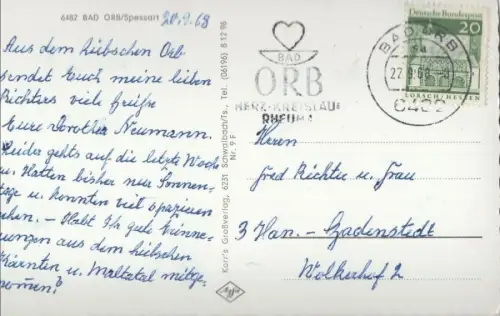 6482 BAD ORB/Spessart
20.9.68
Aus dem hübschen Orb
sendet Euch meine lieben
Richters viele Grüße
Eure Dorothea Neumann.
Leider gehts auf die letzte Woch
u. Hatten bisher nur Sonnen-
tage u. konnten viel spazieren
gehen. – Habt Ihr gute Erinne-
rungen aus dem hübschen
Kärnten u. Maltatal mitge-
nommen?
Karr's Großverlag, 6231 Schwalbach/Ts., Tel. (06196) 8 12 96
Nr. 9 F
Agfa
BAD
ORB
HERZ-KREISLAUF
RHEUMA
BAD ORB
6482
Deutsche Bundespost
20
LORSCH/HESSEN
Herrn
Fred Richter u. Frau
3 Han.- Badenstedt
Wolkerhof 2